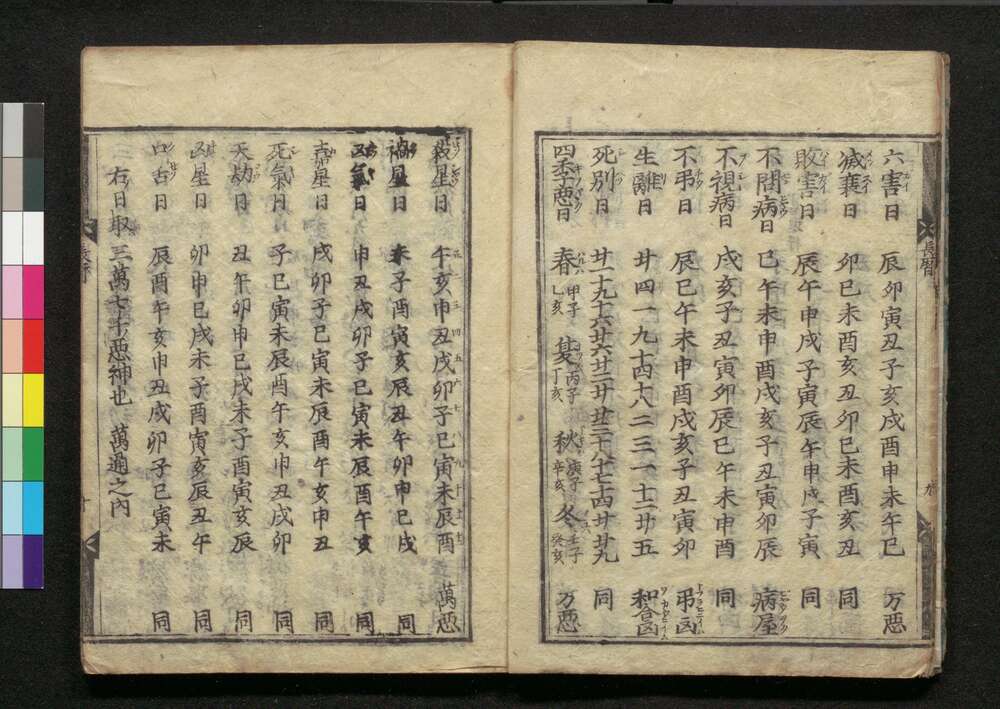 六害日 辰卯寅丑子亥戌酉申未午巳 万悪
滅褱日 卯巳未酉亥丑卯巳未酉亥丑 同
敗害日 辰午申戌子寅辰午申戌子寅 同
不問病日 巳午未申酉戌亥子丑寅卯辰 病屋
不視病日 戌亥子丑寅卯辰巳午未申酉 同
不弔日 辰巳午未申酉戌亥子丑寅卯 弔凶
生離日 廿四一九十四十八二三一十二廿五 和合凶
死別日 同
四季悪日 春 甲子 乙亥 夏 丙子 丁亥 秋 庚子 辛亥 冬 壬子 癸亥 万悪
長暦 九
殺星日 午亥申丑戌卯子巳寅未辰酉 萬悪
禍星日 未子酉寅亥辰丑午卯申巳戌 同
凶氣日 申丑戌卯子巳寅未辰酉午亥 同
害星日 戌卯子巳寅未辰酉午亥申丑 同
死氣日 子巳寅未辰酉午亥申丑戌卯 同
天劫日 丑午卯申巳戌未子酉寅亥辰 同
凶星日 卯申巳戌未子酉寅亥辰丑午 同
口舌日 辰酉午亥申丑戌卯子巳寅未 同
右日取三萬七千悪神也 萬通之内